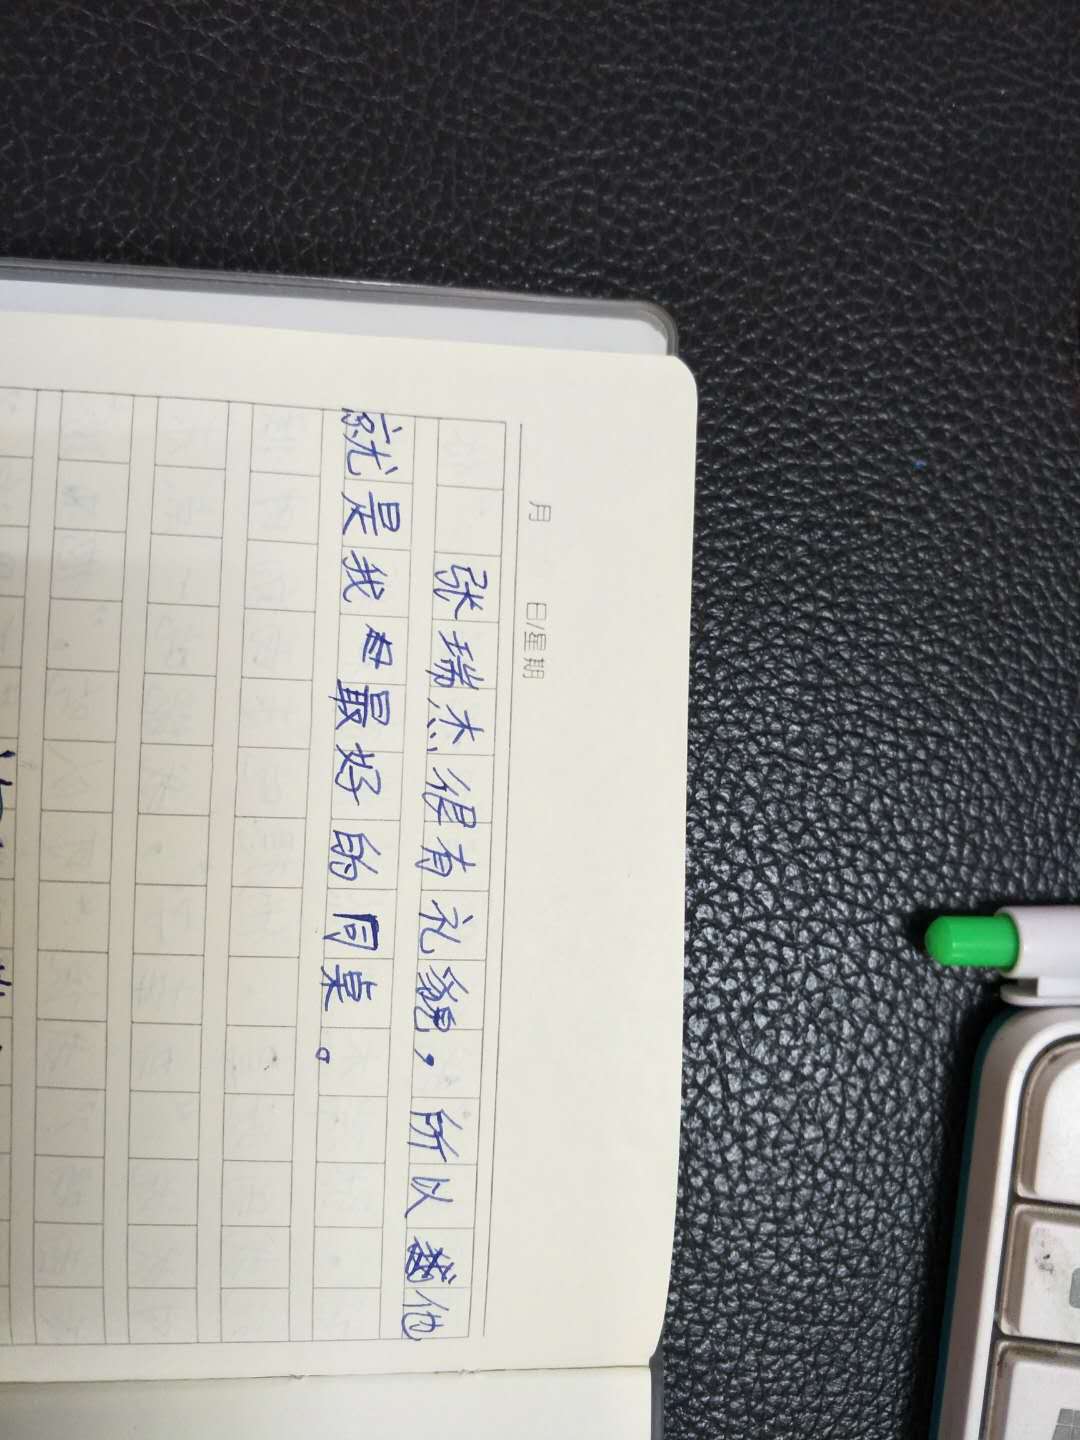 月 日/星期
张瑞杰很有礼貌，所以他
就是我最好的同桌。